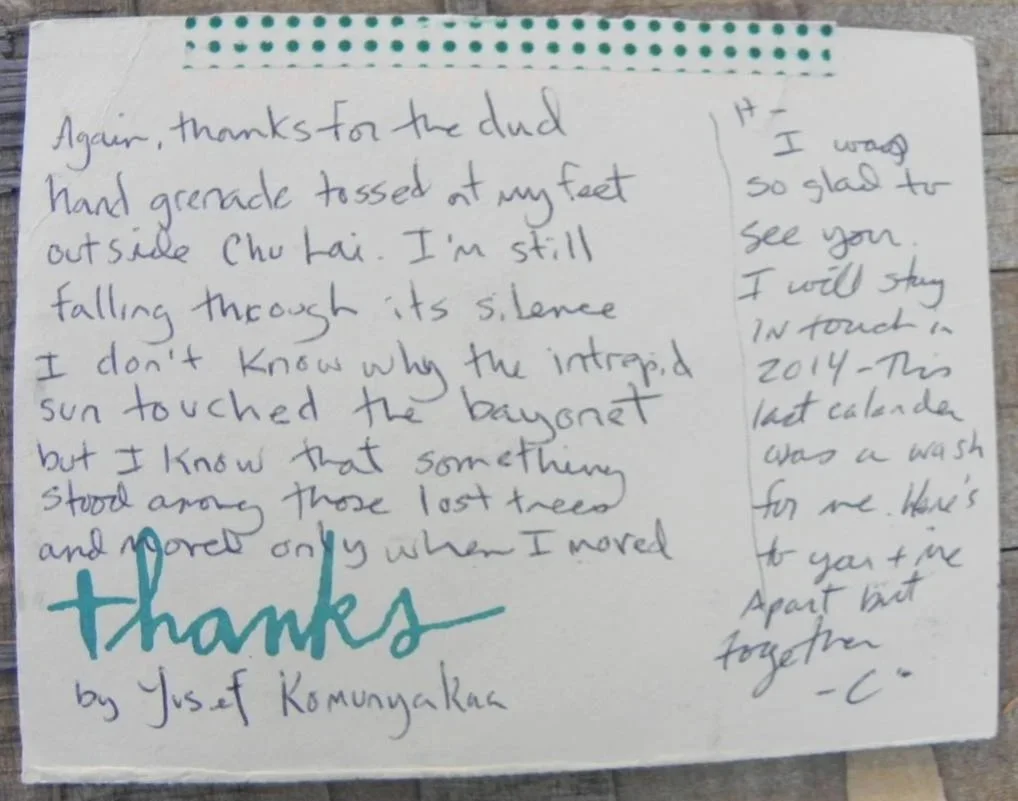 Again, thanks for the dud
hand grenade tossed at my feet
outside Chu Lai. I'm still
falling through its silence
I don't know why the intrepid
sun touched the bayonet
but I know that something
stood among those lost trees
and moved only when I moved
thanks
by Yusef Komunyakaa
H -
I was
so glad to
see you.
I will stay
in touch in
2014 - This
last calander
was a wash
for me. Here's
to you + me
Apart but
together
- C